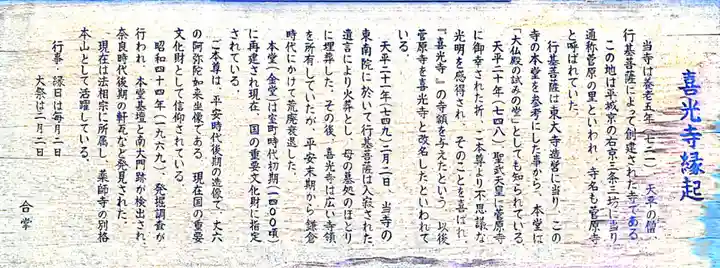 喜光寺縁起
当寺は養老五年（七二一）天平の僧、
行基菩薩によって創建された寺である
この地は平城京の右京三条三坊に当り
通称菅原の里といわれ、寺名も菅原寺
と呼ばれていた。
行基菩薩は東大寺造営に当り、この
寺の本堂を参考にした事から、本堂は
「大仏殿の試みの堂」としても知られている。
天平二十年（七四八）聖武天皇に菅原寺
に御幸された折、ご本尊より不思議な
光明を感得され、そのことを喜ばれ、
『喜光寺』の寺額を与えたという。以後
菅原寺を喜光寺と改名したといわれて
いる。
天平二十一年（七四九）二月二日、当寺の
東南院に於いて行基菩薩は入寂された
遺言により火葬とし、母の墓処のほとり
に埋葬した。その後、喜光寺は広い寺領
を所有していたが、平安末期から鎌倉
時代にかけて荒廃衰退した。
本堂（金堂）は室町時代初期（一四〇〇頃）
に再建され現在、国の重要文化財に指定
されている。
ご本尊は、平安時代後期の造像で、丈六
の阿弥陀如来坐像である。現在国の重要
文化財として信仰されている
昭和四十四年（一九六九）、発掘調査が
行われ、本堂基壇と南大門跡が検出され、
奈良時代後期の軒瓦など発見された。
現在は法相宗に所属し、薬師寺の別格
本山として活躍している。
行事　縁日は毎月二日
大祭は二月二日
合掌